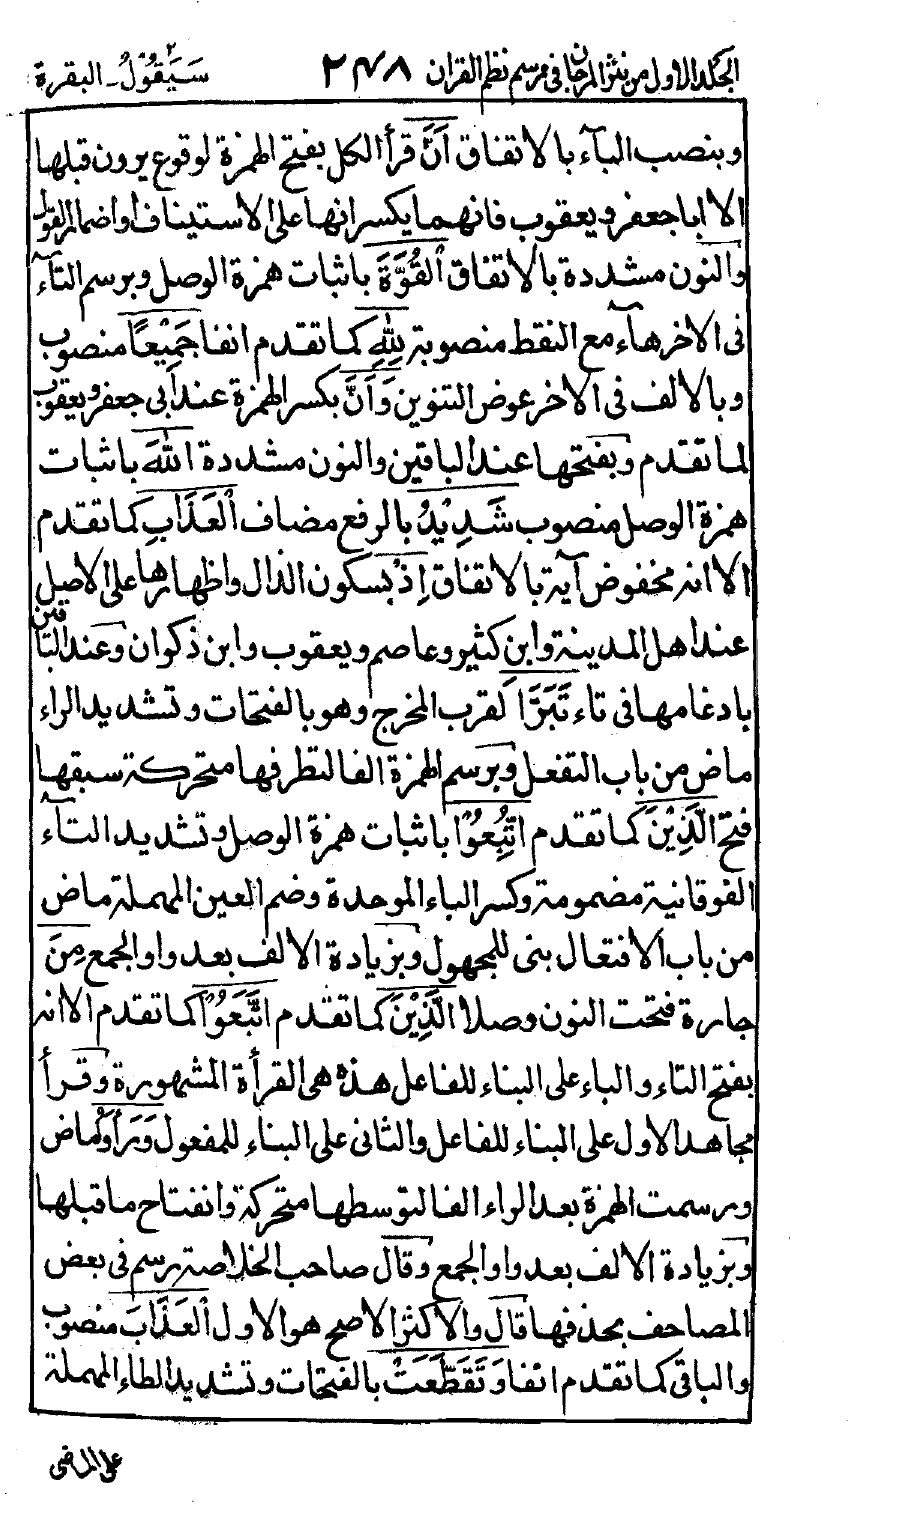 الجلد الاول من نثر المرجان فى رسم نظم القران ٢٤٨ سَيَقُوْلُ ٢ ـ البقرة
وبنصب البآء بالاتفاق اَنَّ قرأ الكل بفتح الهمزة لوقوع يرون قبلها
الا ابا جعفر ويعقوب فانهما يكسرانها على الاستيناف او اضمار القول
والنون مشددة بالاتفاق اَلْقُوَّةَ باثبات همزة الوصل وبرسم التآء
فى الاخرهآء مع النقط منصوبة لِلّٰهِ كما تقدم انفا جَمِيْعًا منصوب
وبالالف فى الاخر عوض التنوين وَاَنَّ بكسر الهمزة عند أبى جعفر ويعقوب
لما تقدم وبفتحها عند الباقين والنون مشددة اللّٰهَ باثبات
همزة الوصل منصوب شَدِيْدُ بالرفع مضاف اَلْعَذَابِ كما تقدم
الا انه مخفوض آية بالاتفاق اِذْ بسكون الذال واظهارها على الاصل
عند اهل المدينة وابن كثير وعاصم ويعقوب وابن ذكوان وعند الباقين
بادغامها فى تاء تَبَرَّاَ لقرب المخرج وهو بالفتحات وتشديد الراء
ماض من باب التفعل وبرسم الهمزة الفا لتطرفها متحركة سبقها
فتح الَّذِيْنَ كما تقدم اتُّبِعُوْا باثبات همزة الوصل وتشديد التآء
الفوقانية مضمومة وكسر الباء الموحدة وضم العين المهملة ماض
من باب الافتعال بنى للمجهول وبزيادة الالف بعد واو الجمع مِنَ
جارة فتحت النون وصلا الَّذِيْنَ كما تقدم اتَّبَعُوْا كما تقدم الا انه
بفتح التاء والباء على البناء للفاعل هذه هى القرأة المشهورة وقرأ
مجاهد الاول على البناء للفاعل والثانى على البناء للمفعول وَرَأَوُا ماض
ورسمت الهمزة بعد الراء الفا لتوسطها متحركة وانفتاح ما قبلها
وبزيادة الالف بعد واو الجمع وقال صاحب الخلاصة رسم فى بعض
المصاحف بحذفها قال والاكثر الاصح هو الاول اَلْعَذَابَ منصوب
والباقى كما تقدم انفا وَتَقَطَّعَتْ بالفتحات وتشديد الطاء المهملة
على الماضى